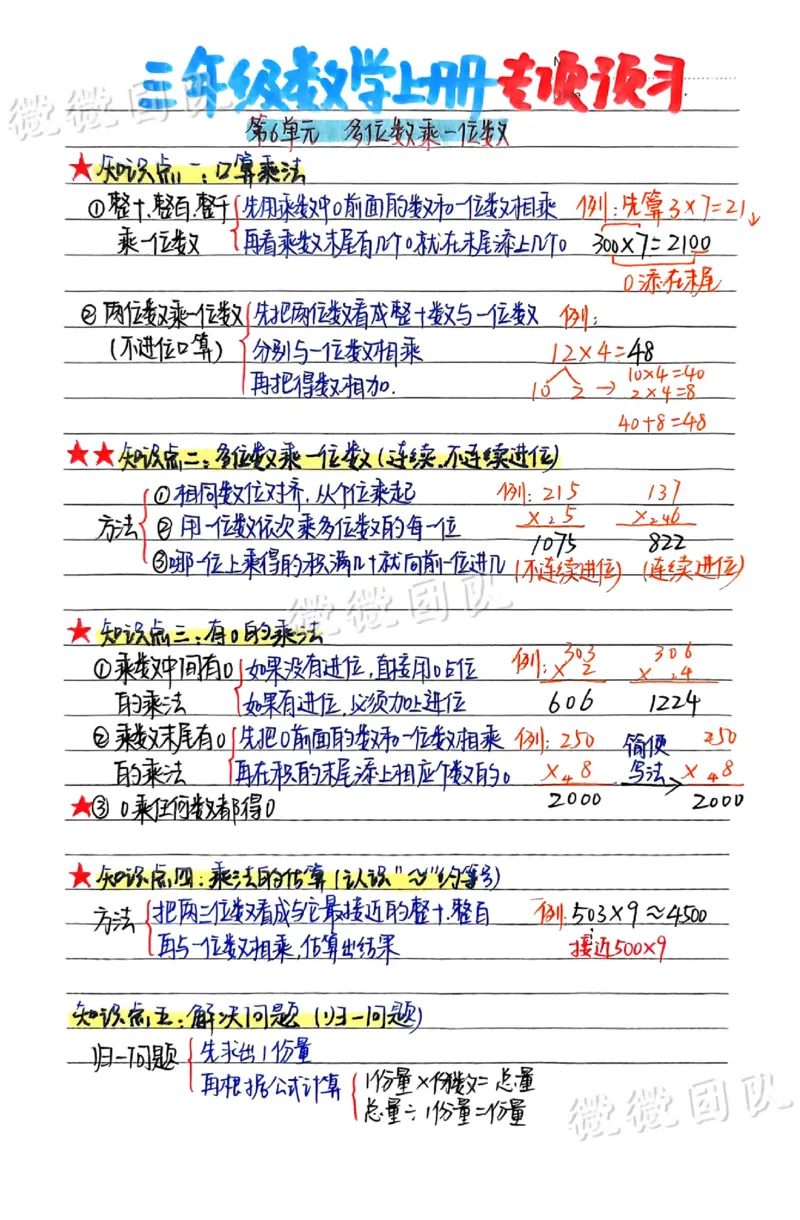 三年级数学上册 专项预习
第6单元 多位数乘一位数
★知识点一：口算乘法
①整十.整百.整千 先用乘数中0前面的数和一位数相乘 例：先算3×7=21
乘一位数 再看乘数末尾有几个0就在末尾添上几个0 300×7=2100
0添在末尾
②两位数乘一位数 先把两位数看成整十数与一位数 例：
(不进位口算) 分别与一位数相乘 12×4=48
再把得数相加. 10 2 → 10×4=40
2×4=8
40+8=48
★★知识点二：多位数乘一位数(连续.不连续进位)
①相同数位对齐，从个位乘起 例：215 137
方法 ②用一位数依次乘多位数的每一位 ×25 ×246
1075 822
③哪一位上乘得的积满几十就向前一位进几 (不连续进位) (连续进位)
★知识点三：有0的乘法
①乘数中间有0 如果没有进位，直接用0占位 例：303 306
× 2 × 24
的乘法 如果有进位，必须加上进位 606 1224
②乘数末尾有0 先把0前面的数和一位数相乘 例：250 简便 250
的乘法 再在积的末尾添上相应个数的0 ×48 写法 ×48
★③ 0乘任何数都得0 2000 2000
★知识点四：乘法的估算(认识"≈"约等号)
方法 把两三位数看成与它最接近的整十.整百 例：503×9≈4500
再与一位数相乘，估算出结果 接近500×9
知识点五：解决问题(归一问题)
归一问题 先求出1份量
再根据公式计算 1份量×份数=总量
总量÷1份量=份量
微微团队
微微团队
微微团队